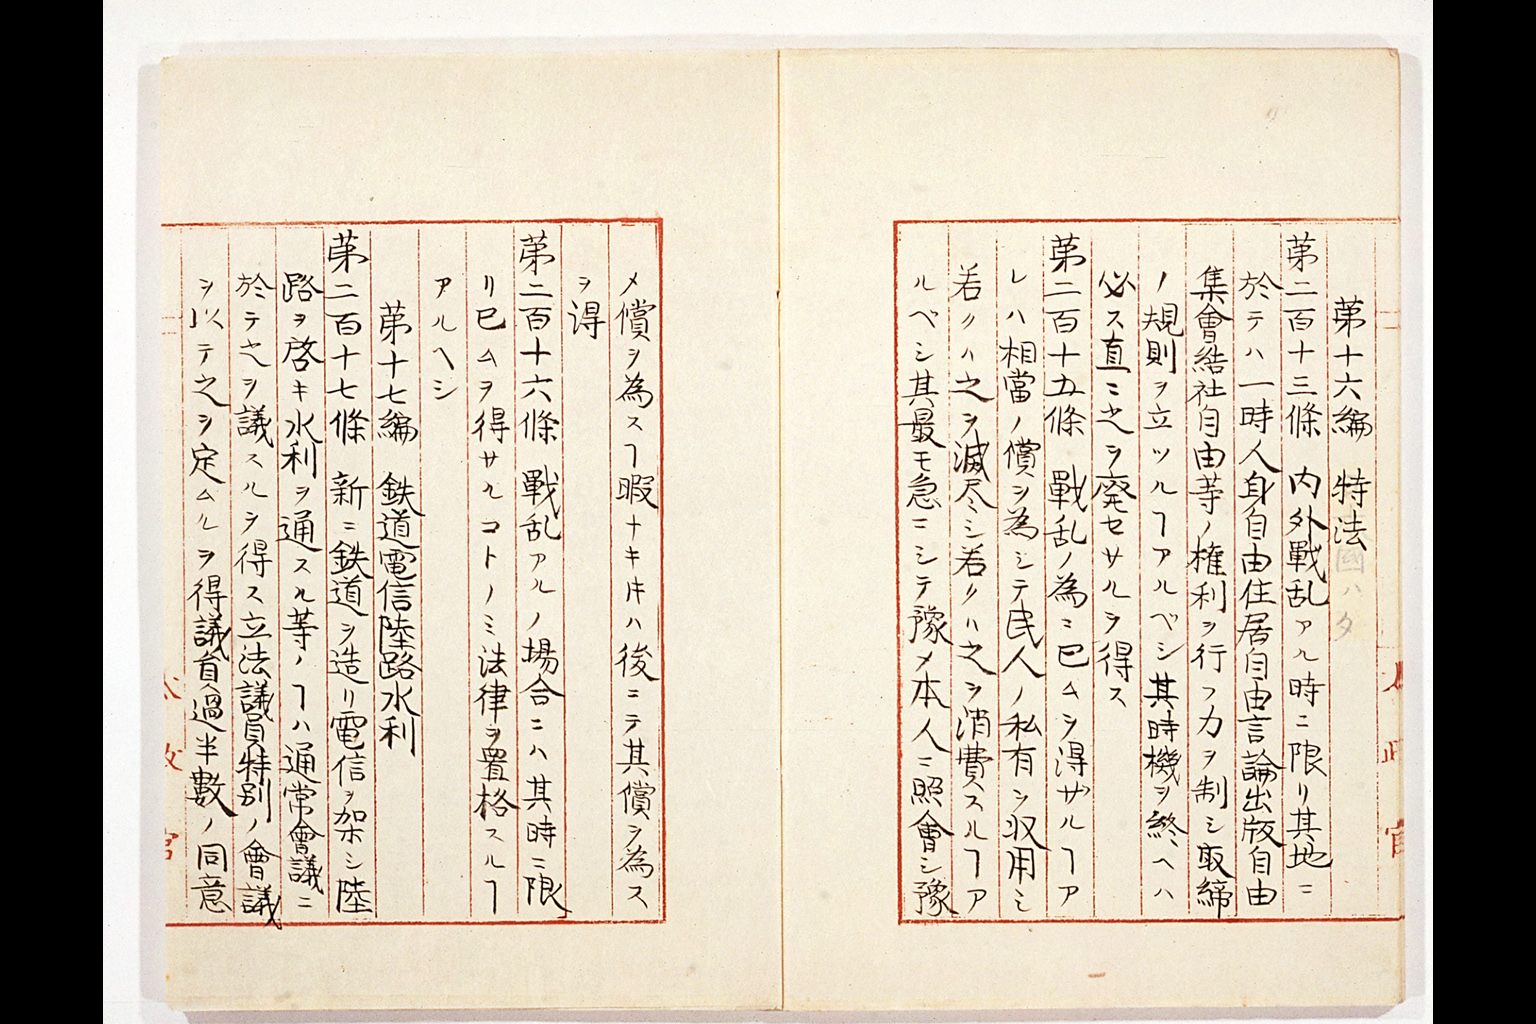 第十六編　特法
第二百十三條　内外戰乱アル時ニ限リ其地ニ
於テハ一時人身自由住居自由言論出版自由
集會結社自由等ノ権利ヲ行フ力ヲ制シ取締
ノ規則ヲ立ツルヿアルベシ其時機ヲ終ヘハ
必ス直ニ之ヲ廃セサルヲ得ス
第二百十五條　戰乱ノ為ニ已ムヲ得ザルヿア
レハ相當ノ償ヲ為シテ民人ノ私有ヲ収用シ
若クハ之ヲ滅尽シ若クハ之ヲ消費スルヿア
ルベシ其最モ急ニシテ豫メ本人ニ照會シ豫
メ償ヲ為スヿ暇ナキ𪜈ハ後ニテ其償ヲ為ス
ヲ得
第二百十六條　戰乱アルノ場合ニハ其時ニ限
リ已ムヲ得サルコトノミ法律ヲ置格スルヿ
アルヘシ
第十七編　鉄道電信陸路水利
第二百十七條　新ニ鉄道ヲ造リ電信ヲ架シ陸
路ヲ啓キ水利ヲ通スル等ノヿハ通常會議ニ
於テ之ヲ議スルヲ得ス立法議員特別ノ會議
ヲ以テ之ヲ定ムルヲ得議員過半數ノ同意
太政官
太政官